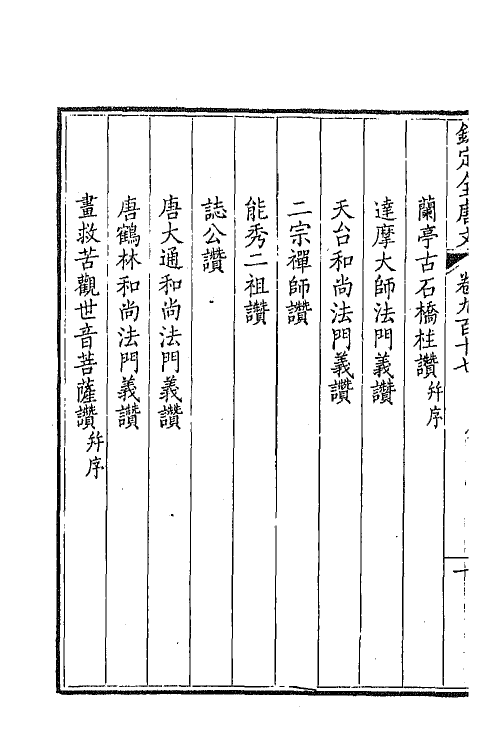 欽定全唐文 卷九百十七
蘭亭古石橋柱讚并序
達摩大師法門義讚
天台和尚法門義讚
二宗禪師讚
能秀二祖讚
誌公讚
唐大通和尚法門義讚
唐鶴林和尚法門義讚
畫救苦觀世音菩薩讚并序